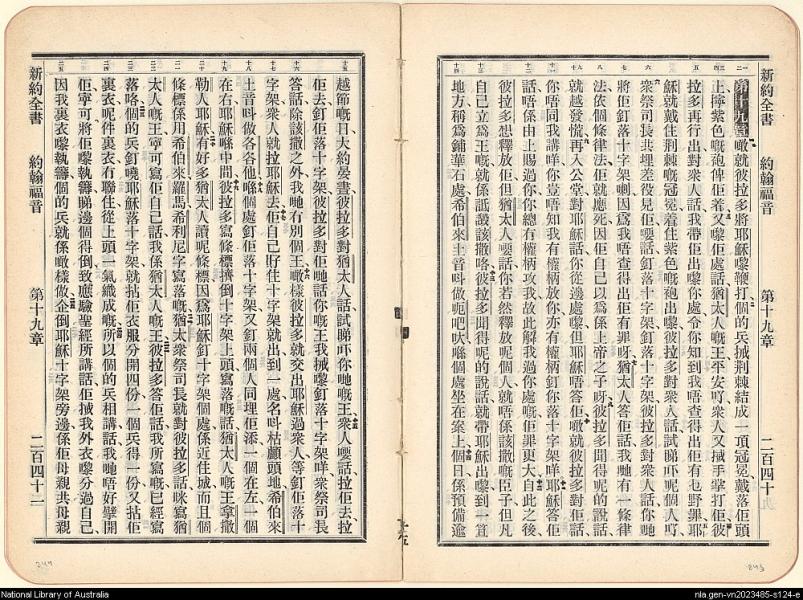 新約全書 約翰福音 第十九章 二百四十
第十九章 噉就彼拉多將耶穌嚟鞭打個的兵搣荊棘結成一項冠冕戴落佢頭
上擰紫色嘅袍俾佢着又嚟佢處話猶太人嘅王平安吖衆人又搣手掌打佢彼
拉多再行出對衆人話我帶佢出嚟你處令你知到我唔查得出佢有乜野罪耶
穌就戴住荊棘嘅冠冕着住紫色嘅袍出嚟彼拉多對衆人話試睇吓呢個人吖
衆祭司長共埋差役見佢嗌話釘落十字架釘落十字架彼拉多對衆人話你哋
將佢釘落十字架喇因爲我唔查得出佢有罪呀猶太人答佢話我哋有一條律
法依個條律法佢就應死因佢自己以爲係上帝之子呀彼拉多聞得呢的說話
就越發慌再入公堂對耶穌話你從邊處嚟但耶穌唔答佢噉就彼拉多對佢話
你唔同我講咩你豈唔知我有權柄放你亦有權柄釘你落十字架咩耶穌答佢
話唔係由上賜過你你總有權柄攻我故此解我過你處嘅佢罪更大自此之後
彼拉多想釋放佢但猶太人嗌話你若然釋放呢個人就唔係該撒嘅臣子但凡
自己立爲王嘅就係詆譭該撒咯彼拉多聞得呢的說話就帶耶穌出嚟到一笪
地方稱爲鋪華石處希伯來土音呌做呃吧吠喺個處坐在案上個日係預備逾
越節嘅日大約晏晝彼拉多對猶太人話試睇吓你哋嘅王衆人嗌話拉佢去拉
佢去釘佢落十字架彼拉多對佢哋話你嘅王我搣嚟釘落十字架咩衆祭司長
答話除該撒之外我哋冇別個王噉樣彼拉多就交出耶穌過衆人等釘佢落十
字架衆人就拉耶穌去佢自己孭住十字架就出到一處名呌枯顱頭地希伯來
土音呌做各各他喺個處釘佢落十字架又釘兩個人同埋佢添一個在左一個
在右耶穌喺中間彼拉多寫條標擠倒十字架上頭寫落嘅話猶太人嘅王拿撒
勒人耶穌有好多猶太人讀呢條標因爲耶穌釘十字架個處係近住城而且個
條標係用希伯來羅馬希利尼字寫落嘅猶太衆祭司長就對彼拉多話咪寫猶
太人嘅王寧可寫佢自己話我係猶太人嘅王彼拉多答佢話我所寫嘅已經寫
落咯個的兵釘嘵耶穌落十字架就拈佢衣服分開四份一個兵得一份又拈佢
裏衣呢件裏衣冇聯住從上頭一氣織成嘅所以個的兵相講話我哋唔好擘開
佢寧可將佢嚟執籌睇邊個得倒致應驗聖經所講話佢搣我外衣嚟分過自己
因我裏衣嚟執籌個的兵就係噉樣做企倒耶穌十字架旁邊係佢母親共母親
新約全書 約翰福音 第十九章 二百四十二
244
243
National Library of Australia
nla.gen-vn2023485-s124-e